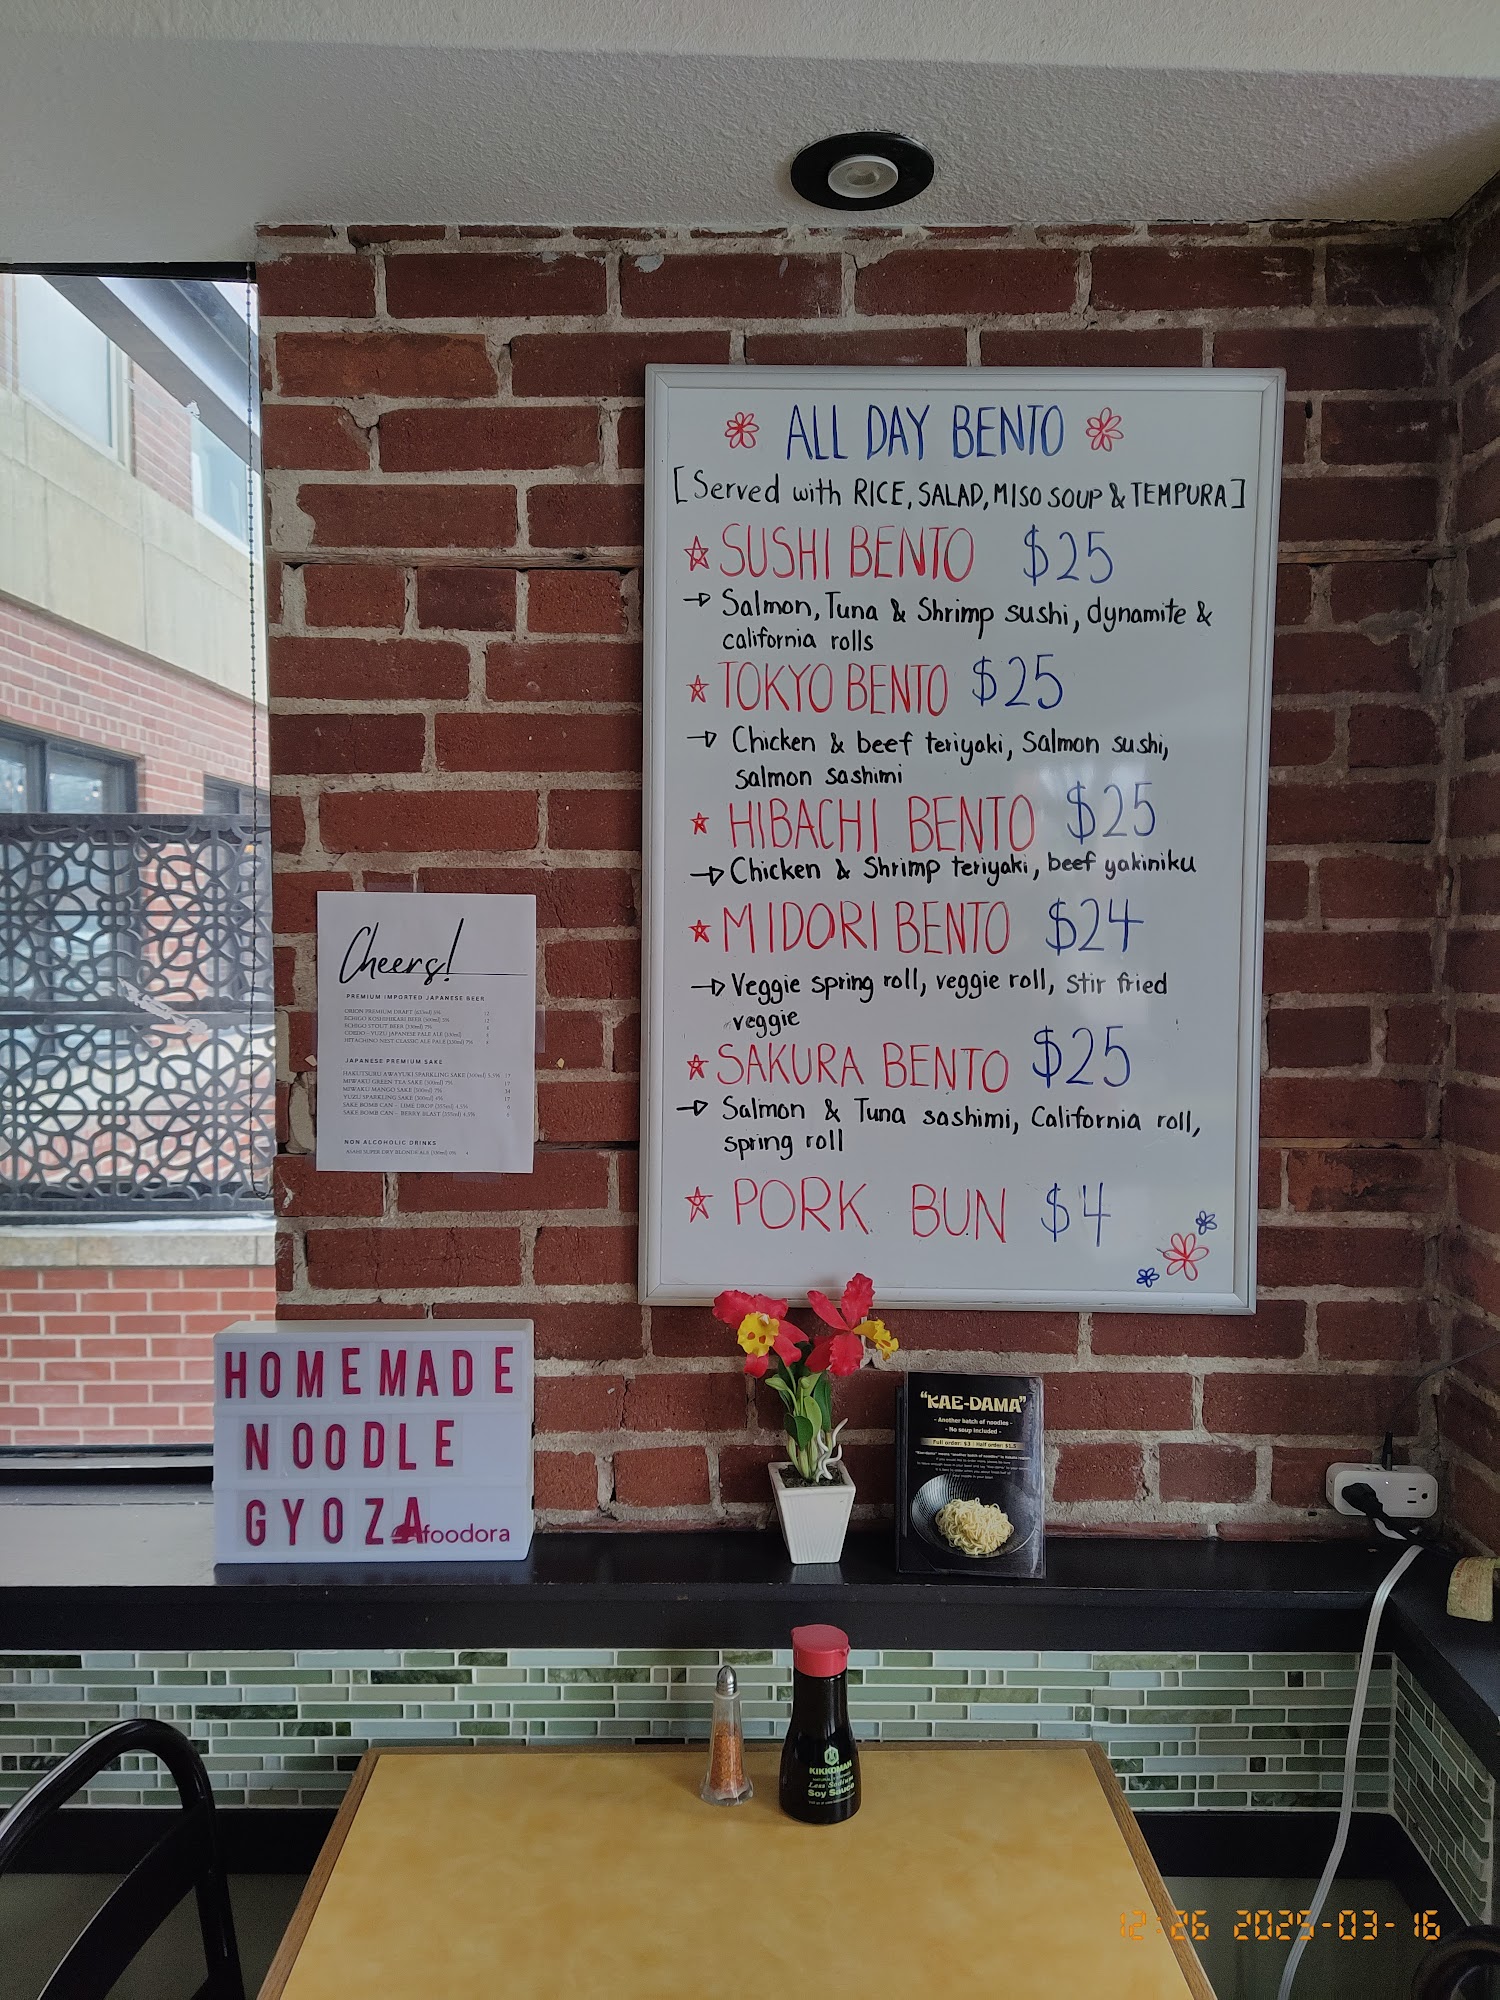 ALL DAY BENTO
[Served with RICE, SALAD, MISO SOUP & TEMPURA]
SUSHI BENTO $25
Salmon, Tuna & Shrimp sushi, dynamite &
california rolls
TOKYO BENTO $25
Chicken & beef teriyaki, Salmon sushi,
salmon sashimi
HIBACHI BENTO $25
Chicken & Shrimp teriyaki, beef yakiniku
MIDORI BENTO $24
Veggie spring roll, veggie roll, stir fried
veggie
SAKURA BENTO $25
Salmon & Tuna sashimi, California roll,
spring roll
PORK BUN $4
Cheers!
PREMIUM IMPORTED JAPANESE BEER
ORION PREMIUM DRAFT (633ml) 5% 12
ECHIGO KOSHIHIKARI BEER (500ml) 5% 12
ECHIGO STOUT BEER (330ml) 7%
COEDO - YUZU JAPANESE PALE ALE (330ml)
HITACHINO NEST CLASSIC ALE PALE (330ml) 7%
JAPANESE PREMIUM SAKE
HAKUTSURU AWAYUKI SPARKLING SAKE (300ml) 5.5% 17
MIWAKU GREEN TEA SAKE (300ml) 7% 17
MIWAKU MANGO SAKE (300ml) 7%
YUZU SPARKLING SAKE (300ml) 17
SAKE BOMB CAN - LIME DROP (355ml) 4.5% 6
SAKE BOMB CAN - BERRY BLAST (355ml) 4.5% 6
NON ALCOHOLIC DRINKS
ASAHI SUPER DRY BLONDE ALE (330ml) 0% 4
HOMEMADE
NOODLE
GYOZA
foodora
"KAE-DAMA"
- Another batch of noodles -
- No soup included -
Full order: $3 Half order: $1.5
KIKKOMAN
Less Sodium
Soy Sauce
12:26 2025-03-16